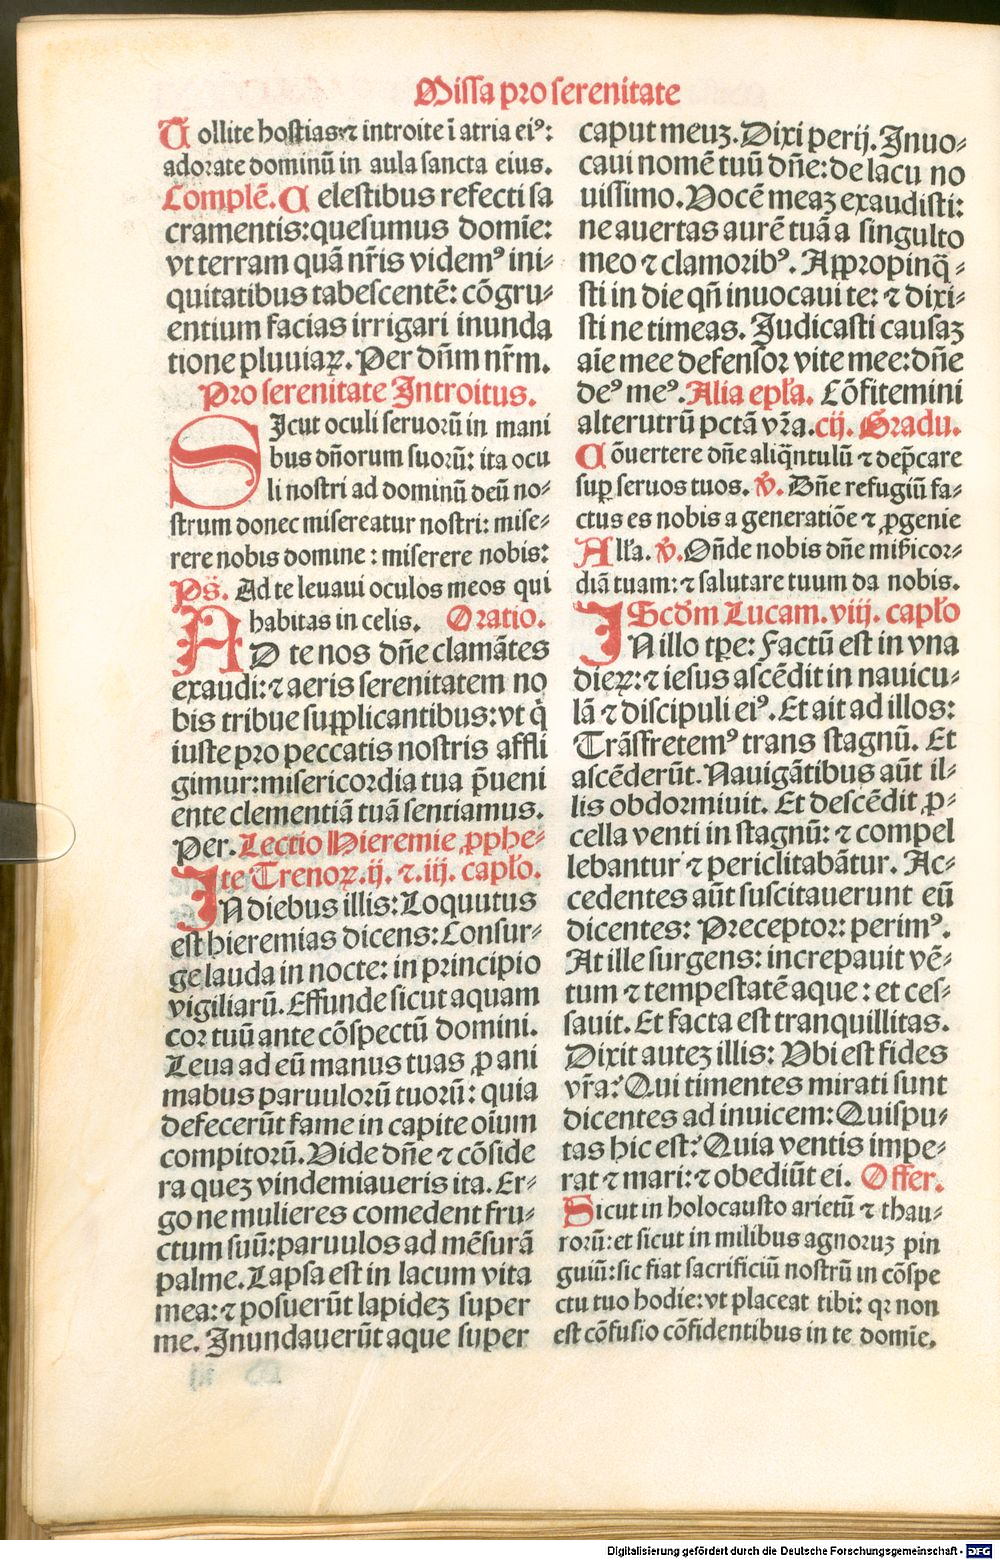 Missa pro serenitate
Tollite hostias ⁊ introite ĩ atria eiꝰ:
adorate dominū in aula sancta eius.
Complē. Celestibus refecti sa
cramentis: quesumus domīe:
vt terram quā nr̄is videmꝰ ini⸗
quitatibus tabescentē: cōgru⸗
entium facias irrigari inunda
tione pluuiaꝝ. Per dn̄m nr̄m.
Pro serenitate Introitus.
SIcut oculi seruorū in mani
bus dn̄orum suorū: ita ocu
li nostri ad dominū deū no⸗
strum donec misereatur nostri: mise⸗
rere nobis domine: miserere nobis:
Ps̄. Ad te leuaui oculos meos qui
habitas in celis. Oratio.
AD te nos dn̄e clamātes
exaudi: ⁊ aeris serenitatem no
bis tribue supplicantibus: vt q̇
iuste pro peccatis nostris affli
gimur: misericordia tua p̄ueni
ente clementiā tuā sentiamus.
Per. Lectio Hieremie ꝓphe⸗
te Trenoꝝ. ij. ⁊. iij. capl̄o.
IN diebus illis: Loquutus
est hieremias dicens: Consur⸗
ge lauda in nocte: in principio
vigiliarū. Effunde sicut aquam
cor tuū ante cōspectū domini.
Leua ad eū manus tuas ꝓ ani
mabus paruulorū tuorū: quia
defecerūt fame in capite oīum
compitorū. Vide dn̄e ⁊ cōside
ra queꝫ vindemiaueris ita. Er⸗
go ne mulieres comedent fru⸗
ctum suū: paruulos ad mēsurā
palme. Lapsa est in lacum vita
mea: ⁊ posuerūt lapideꝫ super
me. Inundauerūt aque super
caput meuꝫ. Dixi perij. Inuo⸗
caui nomē tuū dn̄e: de lacu no
uissimo. Vocē meaꝫ exaudisti:
ne auertas aurē tuā a singulto
meo ⁊ clamoribꝰ. Appropinq̄⸗
sti in die qn̄ inuocaui te: ⁊ dixi⸗
sti ne timeas. Iudicasti causaꝫ
aīe mee defensor vite mee: dn̄e
deꝰ meꝰ. Alia epl̄a. Cōfitemini
alterutrū pctā vr̄a. cij. Gradu.
Cōuertere dn̄e aliq̄ntulū ⁊ dep̄care
suꝑ seruos tuos. ℣. Dn̄e refugiū fa⸗
ctus es nobis a generatiōe ⁊ ꝓgenie
All̄a. ℣. On̄de nobis dn̄e mīs̄icor⸗
diā tuam: ⁊ salutare tuum da nobis.
Scd̄m Lucam. viij. capl̄o
IN illo tp̄e: Factū est in vna
dieꝝ: ⁊ iesus ascēdit in nauicu⸗
lā ⁊ discipuli eiꝰ. Et ait ad illos:
Trāsfretemꝰ trans stagnū. Et
ascēderūt. Nauigātibus aūt il⸗
lis obdormiuit. Et descēdit ꝓ⸗
cella venti in stagnū: ⁊ compel
lebantur ⁊ periclitabātur. Ac⸗
cedentes aūt suscitauerunt eū
dicentes: Preceptor: perimꝰ.
At ille surgens: increpauit vē⸗
tum ⁊ tempestatē aque: et ces⸗
sauit. Et facta est tranquillitas.
Dixit auteꝫ illis: Vbi est fides
vr̄a? Qui timentes mirati sunt
dicentes ad inuicem: Quispu⸗
tas hic est? Quia ventis impe⸗
rat ⁊ mari: ⁊ obediūt ei. Offer.
Sicut in holocausto arietū ⁊ thau⸗
rorū: et sicut in milibus agnoruꝫ pin
guiū: sic fiat sacrificiū nostrū in cōspe
ctu tuo hodie: vt placeat tibi: qꝛ non
est cōfusio cōfidentibus in te domīe.
Digitalisierung gefördert durch die Deutsche Forschungsgemeinschaft - DFG